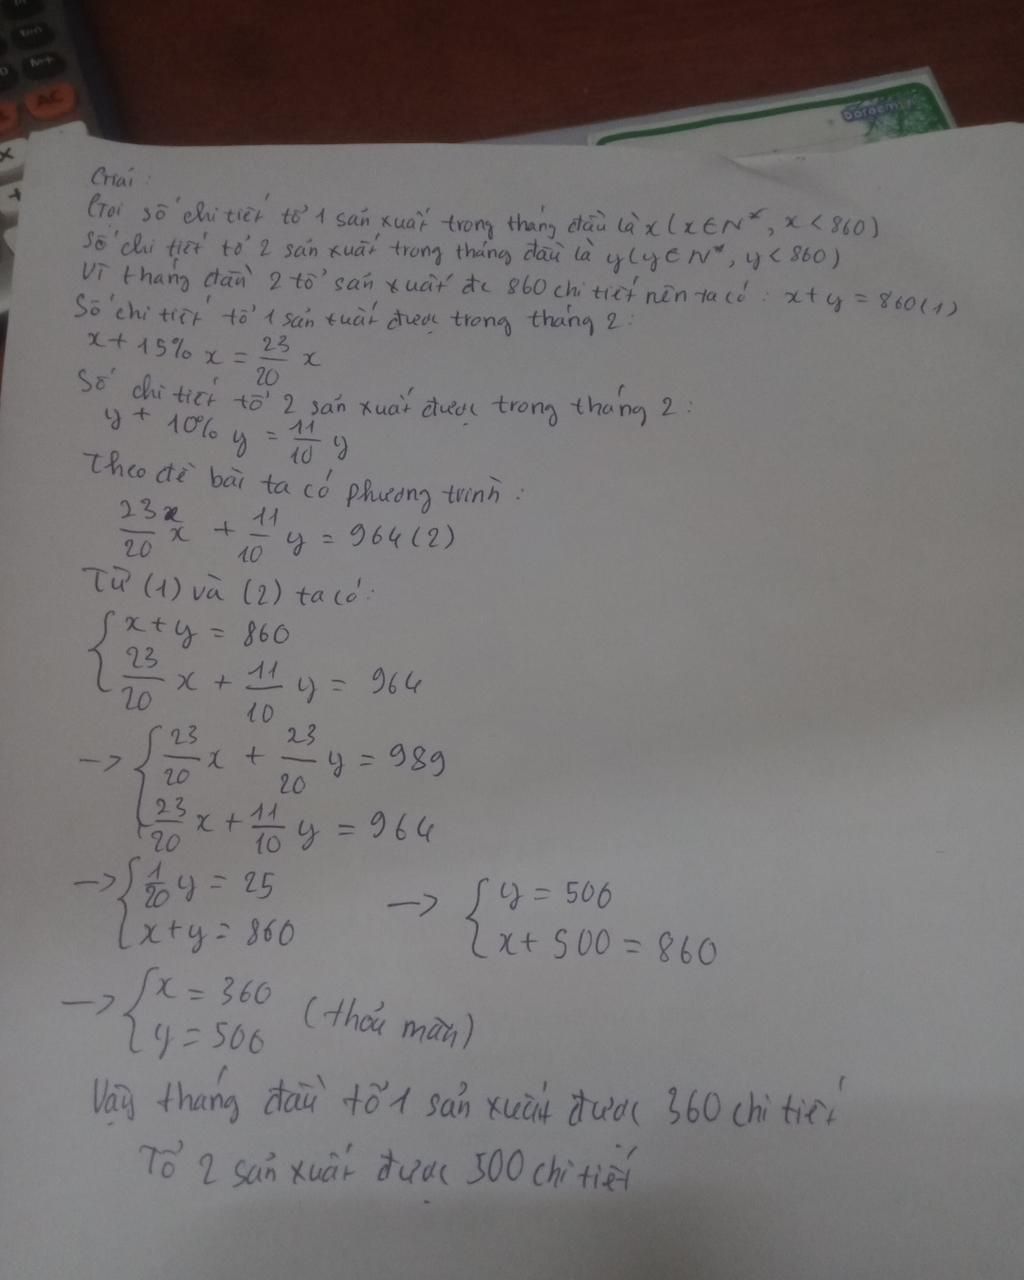 M+
AC
x
+
doraemon
Giải:
Gọi số chi tiết tổ 1 sản xuất trong tháng đầu là x (x ∈ N*, x < 860)
Số chi tiết tổ 2 sản xuất trong tháng đầu là y (y ∈ N*, y < 860)
Vì tháng đầu 2 tổ sản xuất đc 860 chi tiết nên ta có : x + y = 860 (1)
Số chi tiết tổ 1 sản xuất được trong tháng 2:
x + 15% x = 23/20 x
Số chi tiết tổ 2 sản xuất được trong tháng 2:
y + 10% y = 11/10 y
Theo đề bài ta có phương trình:
23/20 x + 11/10 y = 964 (2)
Từ (1) và (2) ta có:
{ x + y = 860
23/20 x + 11/10 y = 964
-> { 23/20 x + 23/20 y = 989
23/20 x + 11/10 y = 964
-> { 1/20 y = 25
x + y = 860
-> { y = 500
x + 500 = 860
-> { x = 360
y = 500
(thoả mãn)
Vậy tháng đầu tổ 1 sản xuất được 360 chi tiết
Tổ 2 sản xuất được 500 chi tiết